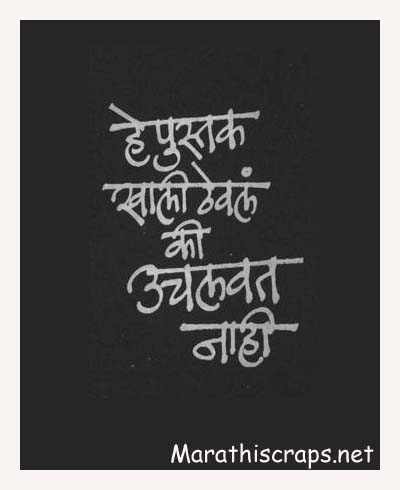 हे पुस्तक
खाली ठेवलं
की
उचलवत
नाही
Marathiscraps.net